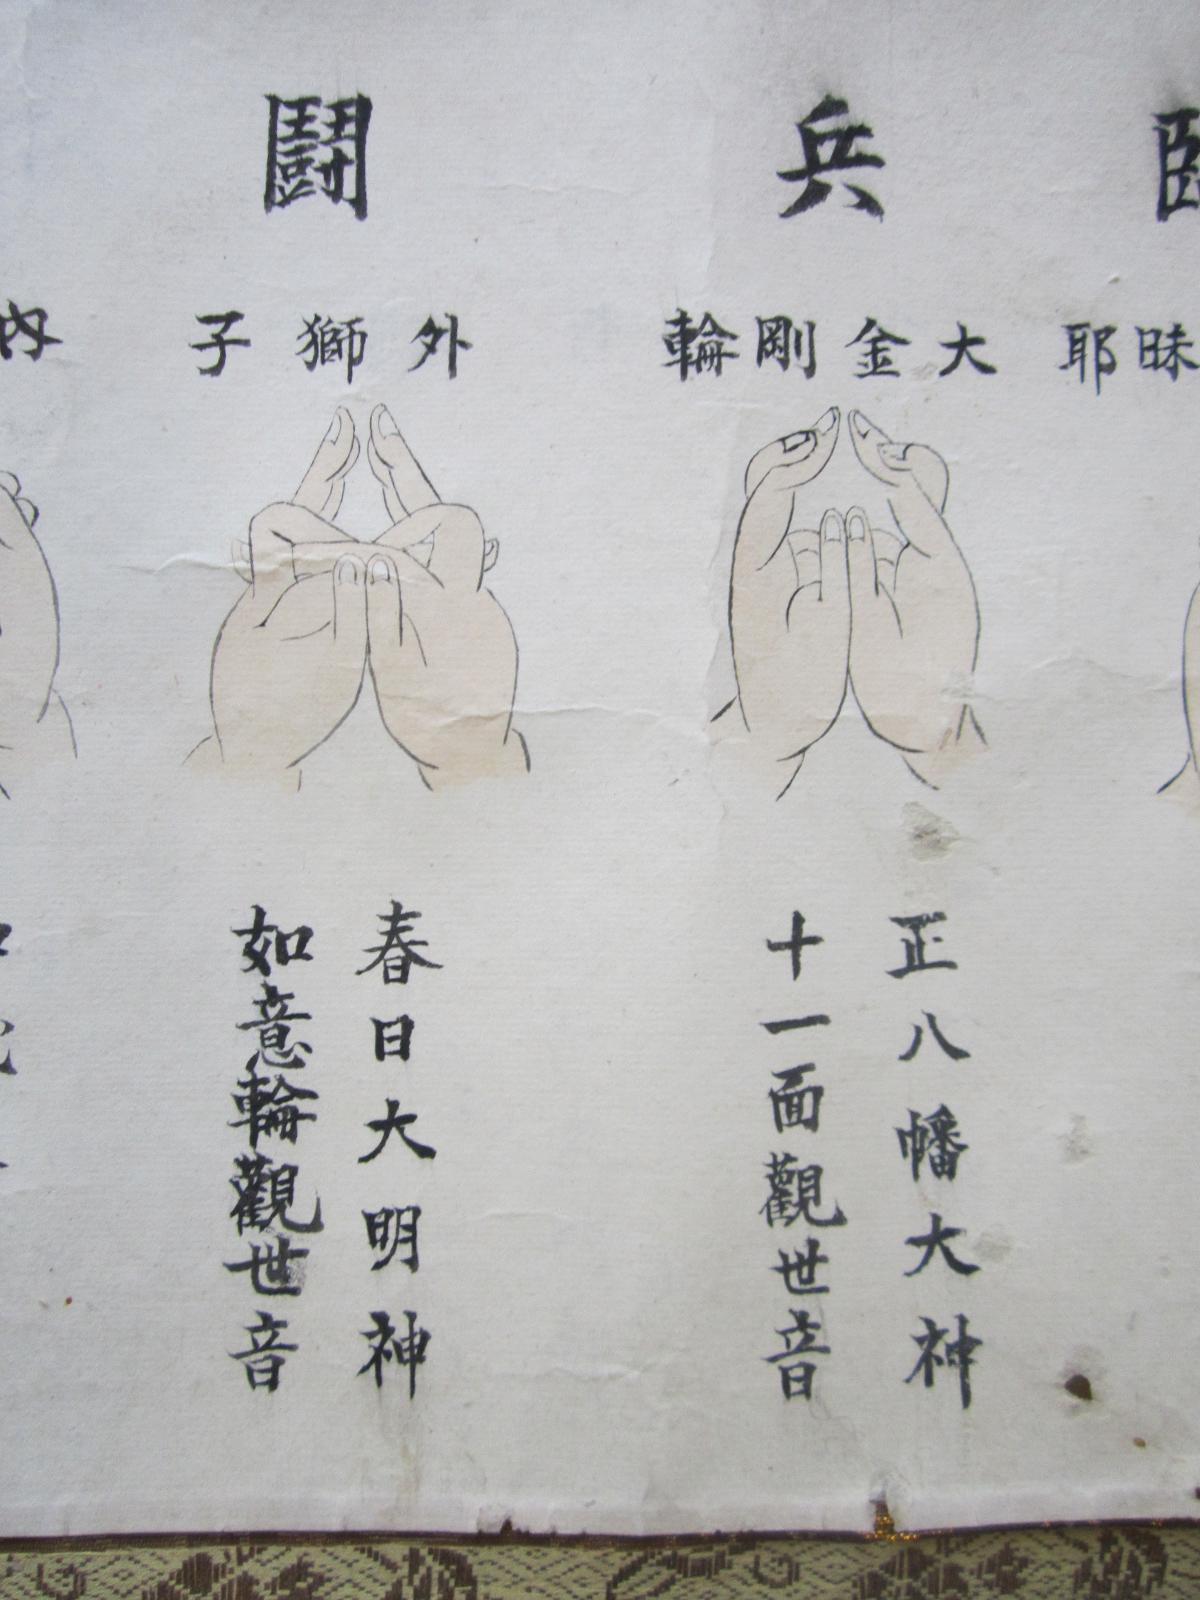 臨
兵
鬪
昧耶
大金剛輪
外獅子
內
正八幡大神
十一面觀世音
春日大明神
如意輪觀世音